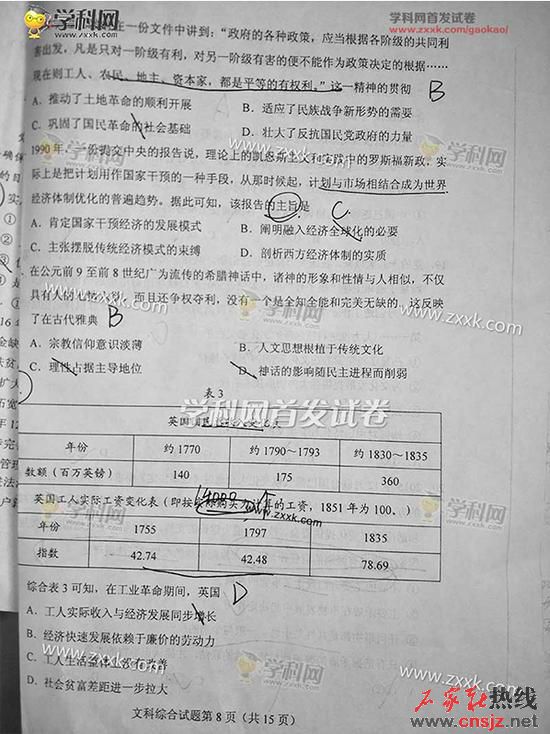 学科网首发试卷
www.zxxk.com/gaokao/
在一份文件中讲到：“政府的各种政策，应当根据各阶级的共同利
害出发，凡是只对一阶级有利，对另一阶级有害的便不能作为政策决定的根据……
现在则工人、农民、地主、资本家，都是平等的有权利。”这一精神的贯彻 B
A．推动了土地革命的顺利开展 B．适应了民族战争新形势的需要
C．巩固了国民革命的社会基础 D．壮大了反抗国民党政府的力量
1990年，一份提交中央的报告说，理论上的凯恩斯主义和实践中的罗斯福新政，实
际上是把计划用作国家干预的一种手段，从那时候起，计划与市场相结合成为世界
经济体制优化的普遍趋势。据此可知，该报告的主旨是 C
A．肯定国家干预经济的发展模式 B．阐明融入经济全球化的必要
C．主张摆脱传统经济模式的束缚 D．剖析西方经济体制的实质
在公元前9至前8世纪广为流传的希腊神话中，诸神的形象和性情与人相似，不仅
具有人的七情六欲，而且还争权夺利，没有一个是全知全能和完美无缺的。这反映
了在古代雅典 B
A．宗教信仰意识淡薄 B．人文思想根植于传统文化
C．理性占据主导地位 D．神话的影响随民主进程而削弱
表3
学科网首发试卷
年份 约1770 约1790～1793 约1830～1835
数额（百万英镑） 140 175 360
英国工人实际工资变化表（即按实际购买力计算的工资，1851年为100。）
年份 1755 1797 1835
指数 42.74 42.48 78.69
综合表3可知，在工业革命期间，英国 D
A．工人实际收入与经济发展同步增长
B．经济快速发展依赖于廉价的劳动力
C．工人生活整体上有所改善
D．社会贫富差距进一步拉大
文科综合试题第8页（共15页）
学科网
www.zxxk.com
石家庄热线
www.cnsjz.net